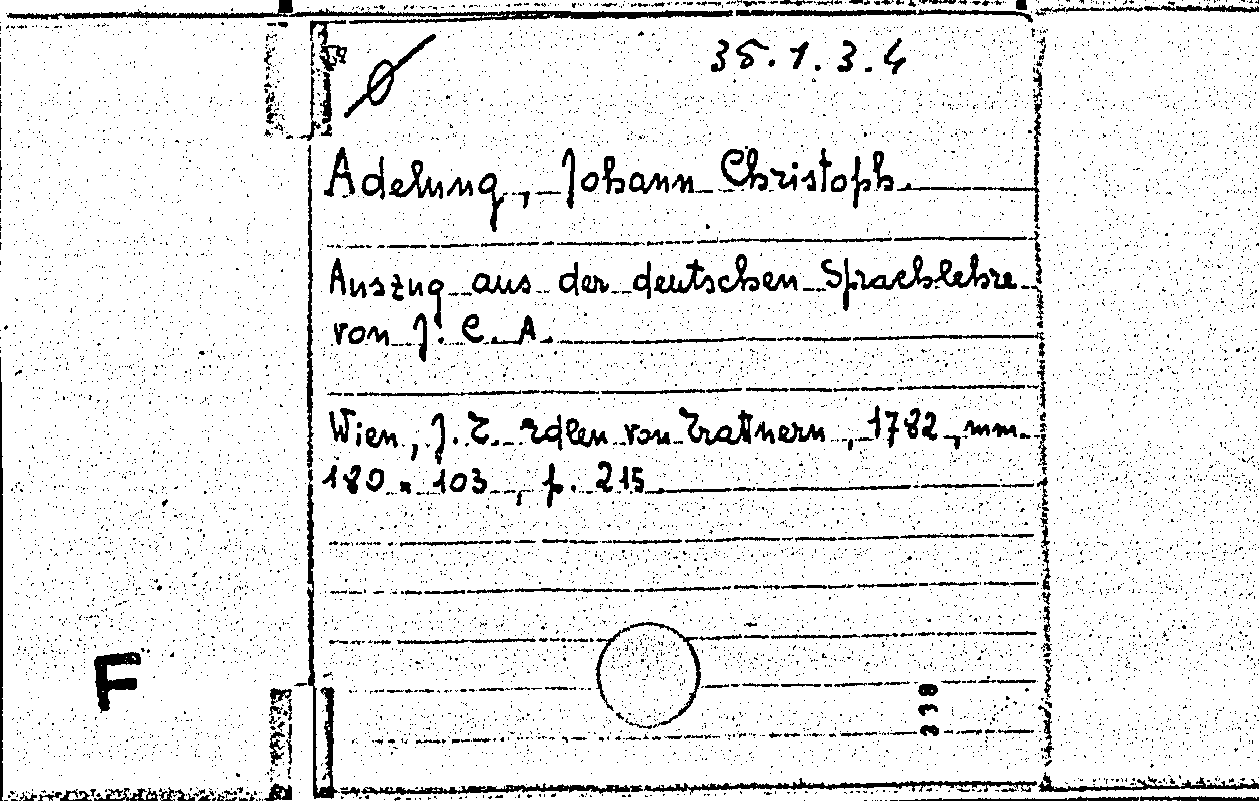 35.1.3.4
Adelung, Johann Christoph.
Auszug aus der deutschen Sprachlehre
von J. C. A.
Wien, J. T. Edlen von Trattnern, 1782, mm.
180 x 103, p. 215.
F